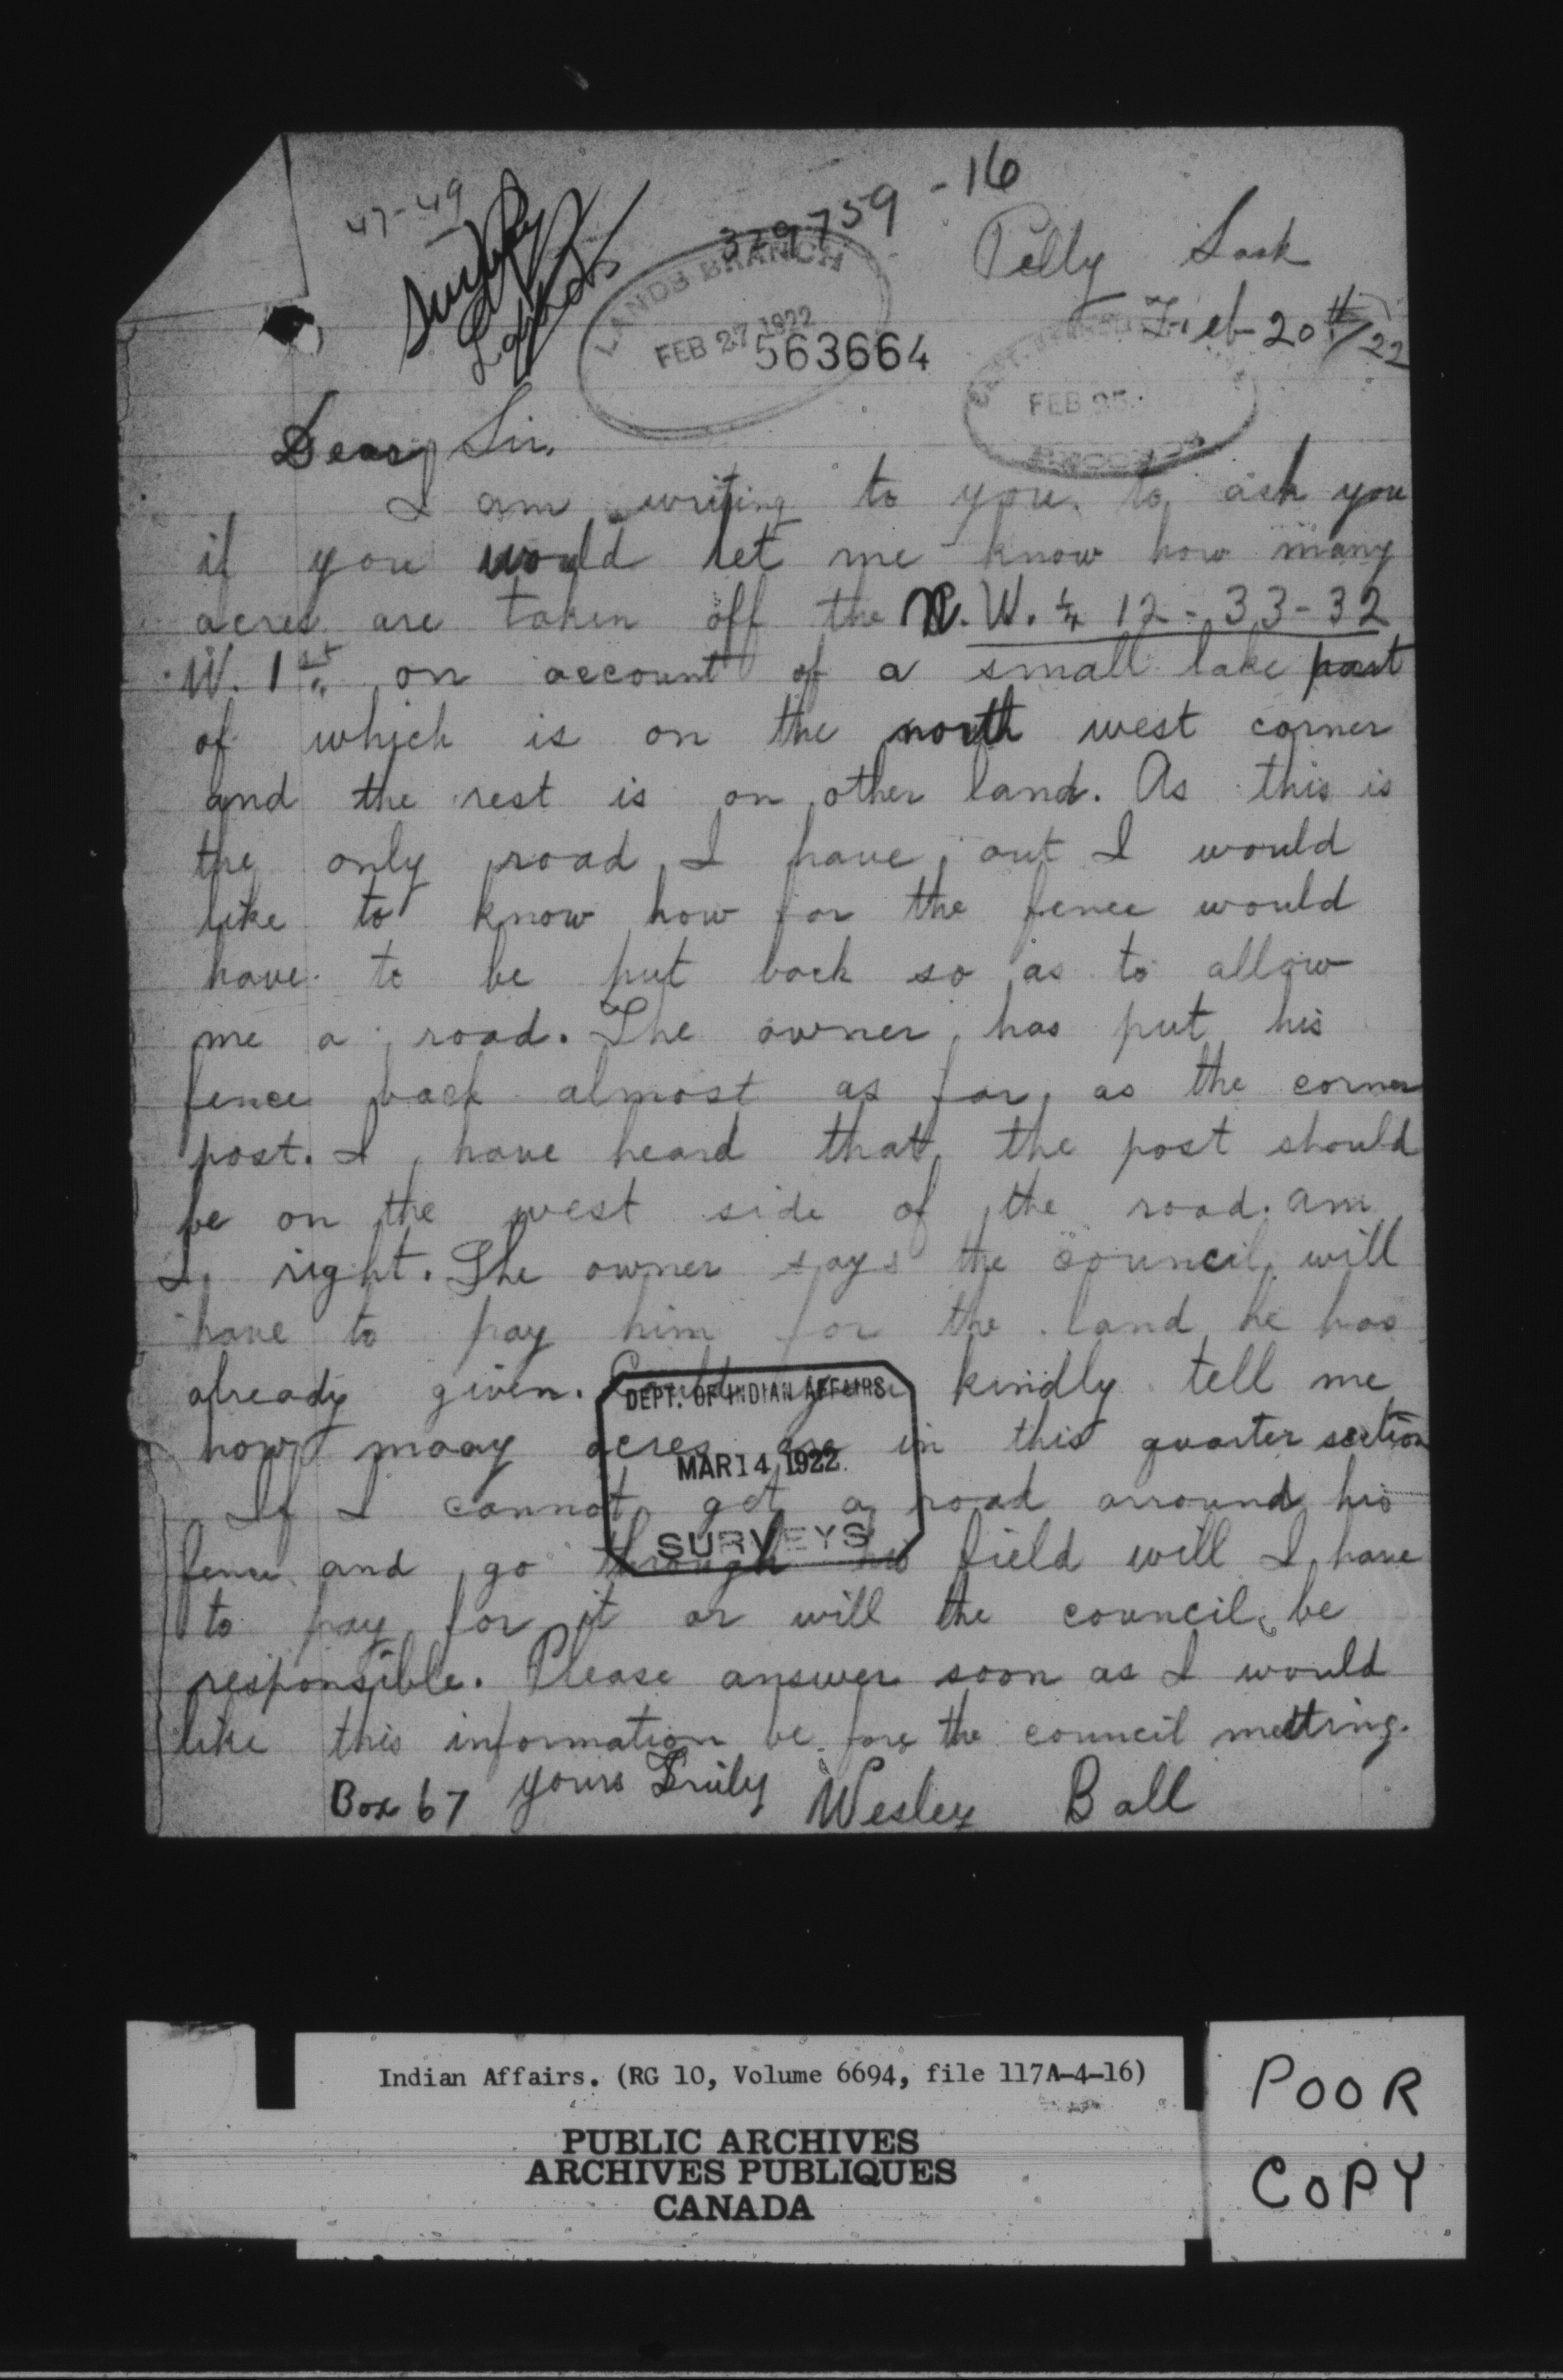 47-49
329759-16
LANDS BRANCH
FEB 27 1922
563664
Pelly Sask
Feb 20th/22
FEB 25
RECORDS
Dear Sir,
I am writing to you to ask you
if you would let me know how many
acres are taken off the N.W. ¼ 12-33-32
W. 1st on account of a small lake part
of which is on the north west corner
and the rest is on other land. As this is
the only road I have out I would
like to know how far the fence would
have to be put back so as to allow
me a road. The owner has put his
fence back almost as far as the corner
post. I have heard that the post should
be on the west side of the road. am
I right. The owner says the council will
have to pay him for the land he has
already given. Could you kindly tell me
how many acres are in this quarter section
If I cannot get a road arround his
fence and go through his field will I have
to pay for it or will the council be
responsible. Please answer soon as I would
like this information before the council metting.
Box 67 yours Truly Wesley Ball
DEPT. OF INDIAN AFFAIRS
MAR 14 1922
SURVEYS
Indian Affairs. (RG 10, Volume 6694, file 117A-4-16)
PUBLIC ARCHIVES
ARCHIVES PUBLIQUES
CANADA
POOR
COPY